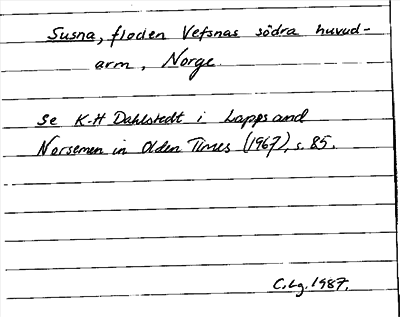 Susna, floden Vefsnas södra huvud-
arm, Norge.
Se K-H Dahlstedt i Lapps and
Norsemen in Olden Times (1967), s. 85.
C.Lg. 1987.